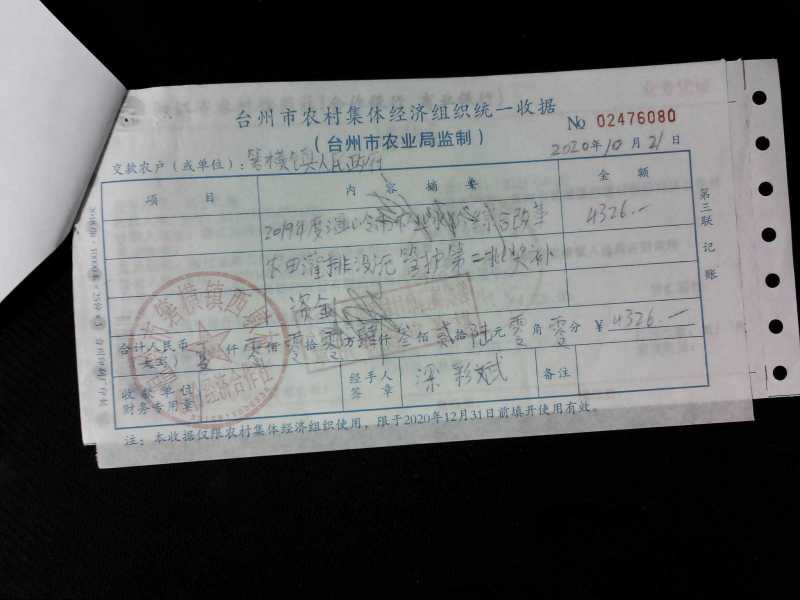 台州市农村集体经济组织统一收据
(台州市农业局监制)
No 02476080
2020年10月21日
交款农户（或单位）：箬横镇人民政府
项目 内容摘要 金额
2019年度温岭市农业水价综合改革 4326.—
农田灌排设施管护第二批奖补
资金
合计人民币（大写） 零仟零佰零拾零万肆仟叁佰贰拾陆元零角零分 ￥4326.—
收款单位财务专用章 经手人签章 梁彩斌 备注
注：本收据仅限农村集体经济组织使用，限于2020年12月31日前填开使用有效。
第三联 记账